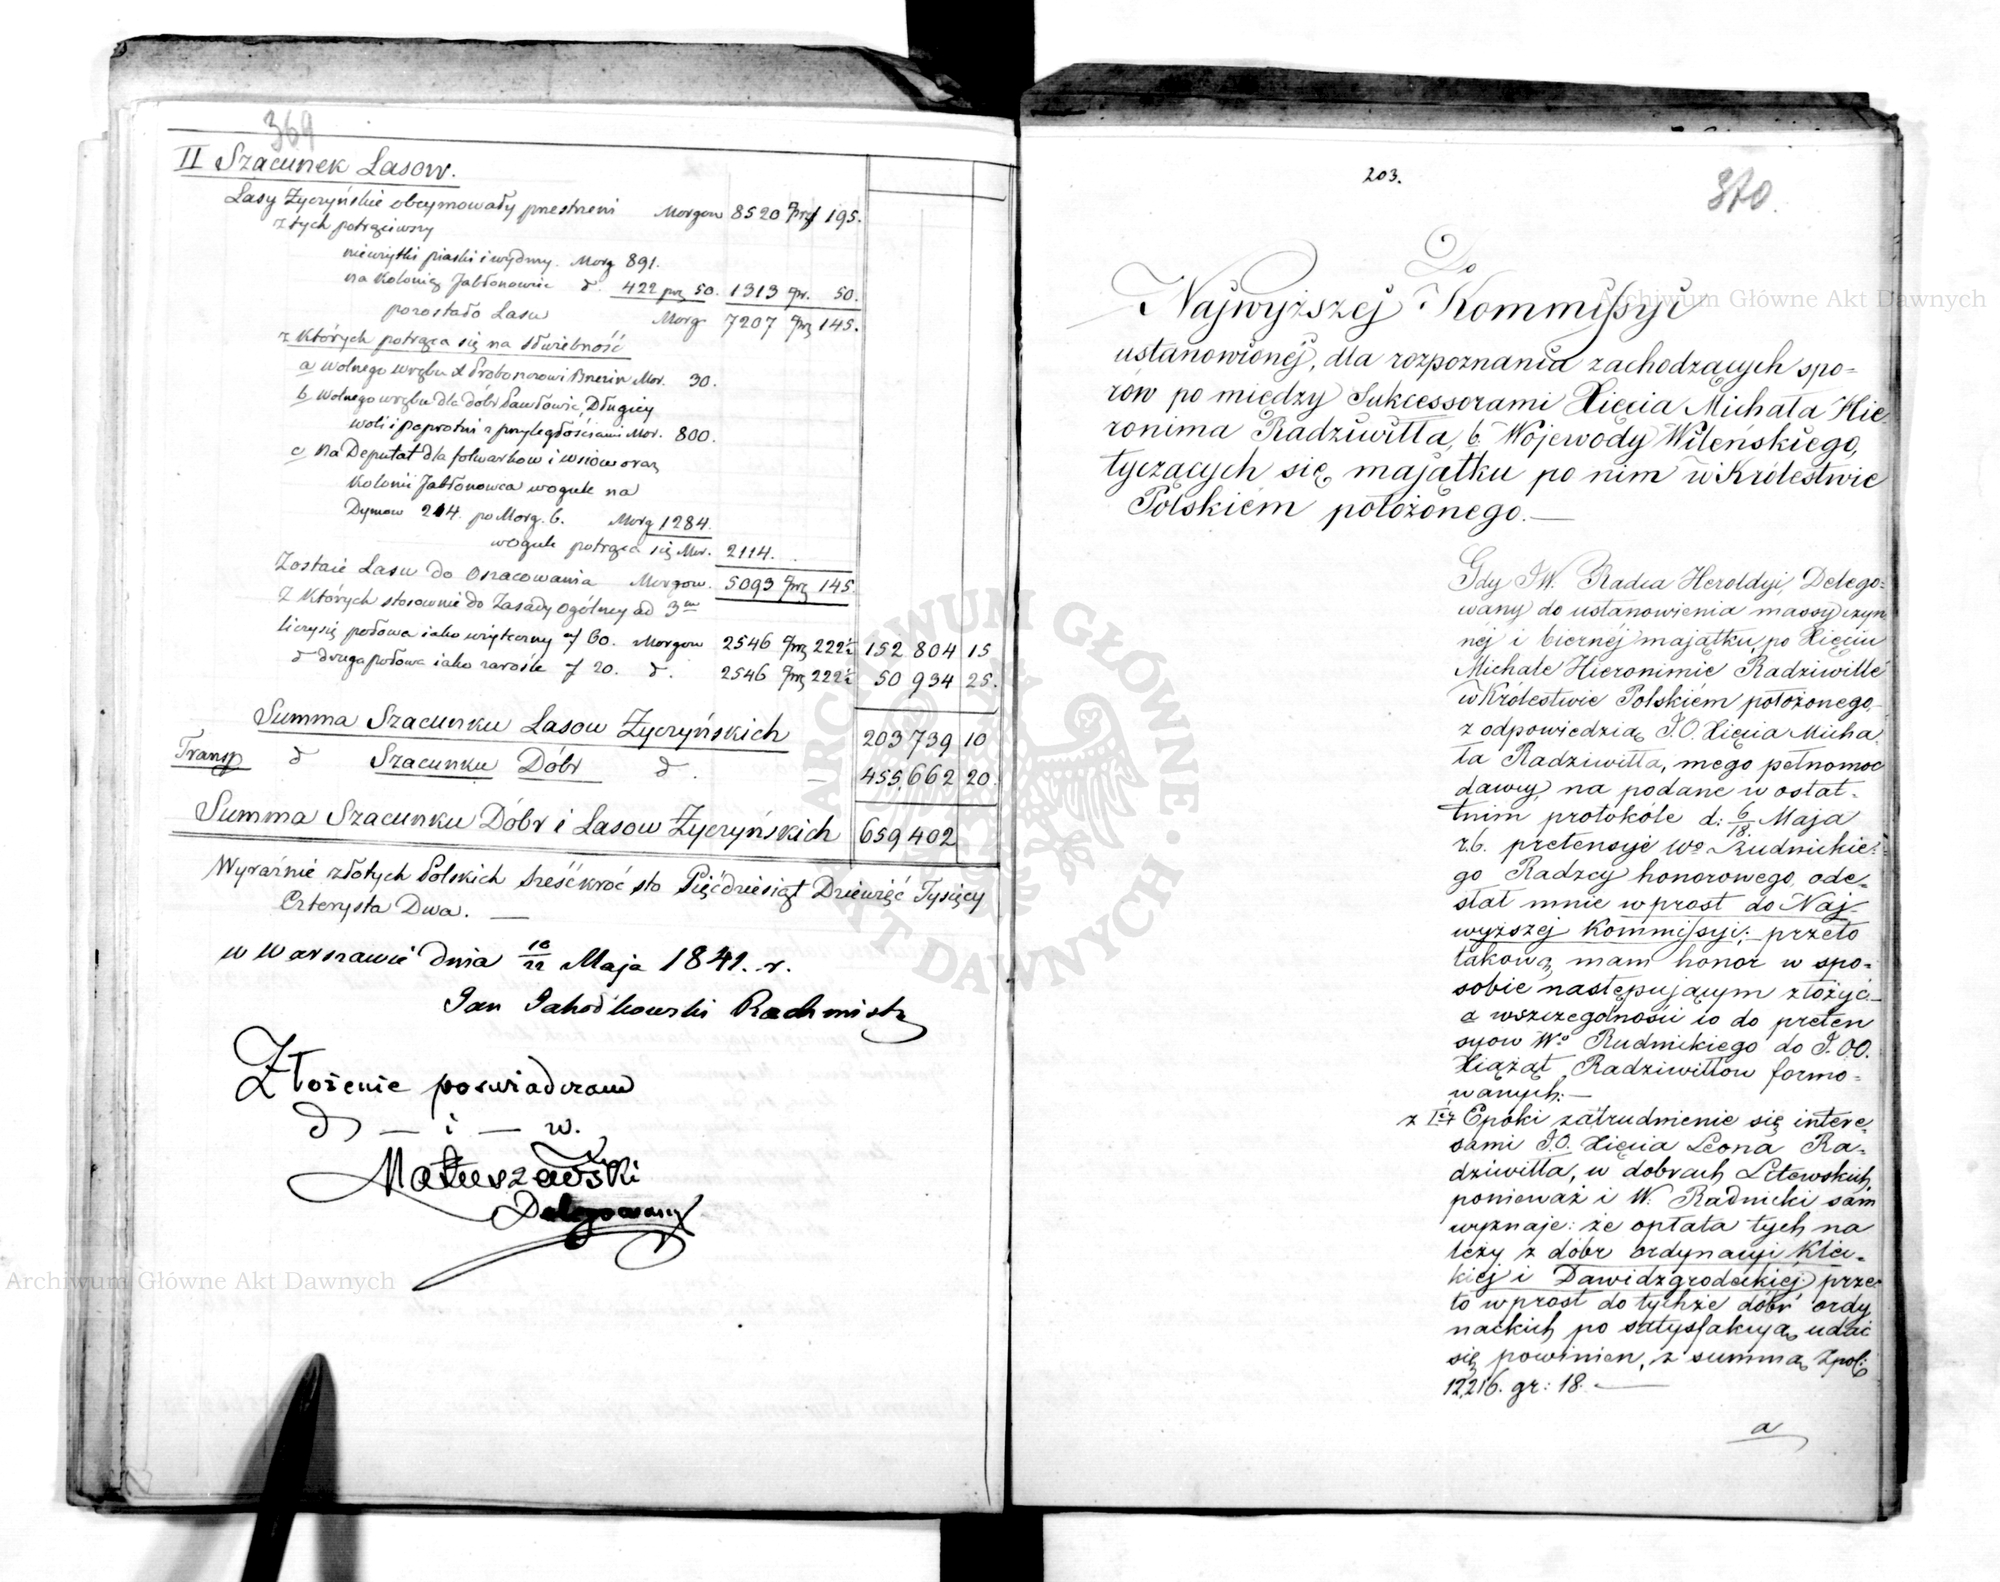 369
II Szacunek Lasow.
Lasy Życzyńskie obeymowały przestrzeni Morgow 8520 prę 195.
z tych potrąciwszy
nieużytki piaski i wydmy. Morg 891.
na Kolonię Jabłonowiec d. 422 prę 50. 1313 pr. 50.
pozostało Lasu Morg 7207 prę 145.
z Których potrąca się na służebność
a wolnego wrębu Proboszczowi Mor. 30.
b Wolnego wrębu dla dóbr Pawłowic, Długiey
woli i Paprotni z przyległościami Mor. 800.
c Na Deputat dla folwarkow i wsiow oraz
Kolonii Jabłonowca wogule na
Dymow 214. po Morg. 6. Morg 1284.
wogule potrąca się Mor. 2114.
Zostaie Lasu do Oszacowania Morgow. 5093 prę 145.
Z Których stosownie do Zasady Ogólney ad 3m
liczy się połowa iako użyteczny af 60. Morgow 2546 prę 222½ 152 804 15
d druga połowa iako zarośle f 20. d. 2546 prę 222½ 50 934 25.
Summa Szacunku Lasow Życzyńskich 203 739 10
Transp d Szacunku Dóbr d. — 455,662 20.
Summa Szacunku Dóbr i Lasow Życzyńskich 659 402
Wyraźnie złotych Polskich Sześćkroć sto Pięćdziesiąt Dziewięć Tysięcy
Czterysta Dwa. —
w Warszawie dnia 10/22 Maja 1841. r.
Jan Jakodkowski Rachmistrz
Złożenie poswiadczam
d — i — w.
Matuszewski
Delegowany
203.
370.
Do
Najwyższej Kommissyi
ustanowionej, dla rozpoznania zachodzących spo=
rów po między Sukcessorami Xięcia Michała Hie
ronima Radziwiłła, b. Wojewody Wileńskiego,
tyczących się majątku po nim w Królestwie
Polskiem położonego. —
Gdy JW. Radca Heroldyi, Delego=
wany do ustanowienia massy czyn
néj i biernéj majątku, po Xięciu
Michale Hieronimie Radziwille
w Królestwie Polskiém położonego,
z odpowiedzią J.O. Xięcia Micha=
ła Radziwiłła, mego pełnomoc
dawcy, na podane w ostat=
tnim protokóle d: 6/18. Maja
r.b. pretensyje Wo Rudnickie=
go Radzcy honorowego, ode=
słał mnie wprost do Naj=
wyższej Kommissyi; przeto
takową mam honor w spo=
sobie następującym złożyć—
a wszczegolności co do preten
syow Wo Rudnickiego do J.OO.
Xiążąt Radziwiłłow formo=
wanych:—
z Iej Epoki zatrudnienie się intere=
sami J.O. Xięcia Leona Ra=
dziwiłła, w dobrach Litewskich,
ponieważ i W. Radnicki sam
wyznaje: że opłata tych na
leży z dóbr ordynacyi Klec=
kiej i Dawidzgrodeckiej, prze
to wprost do tychże dóbr ordy
nackich po satysfakcyą udać
się powinien, z summą Zpol:
12,216. gr: 18. —
a
Archiwum Główne Akt Dawnych
Archiwum Główne Akt Dawnych
ARCHIWUM GŁÓWNE AKT DAWNYCH